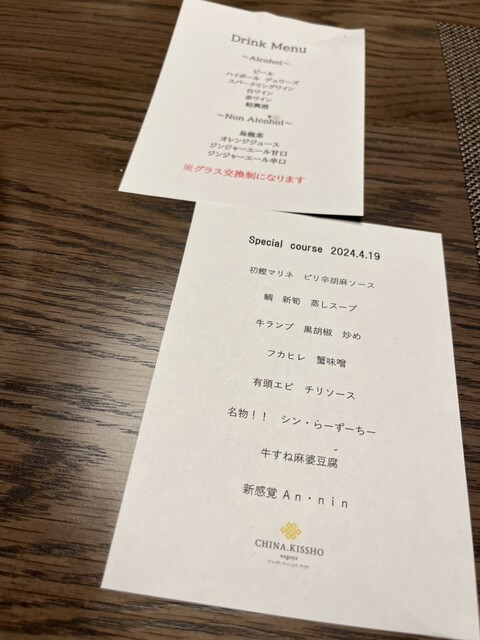 Drink Menu
～Alcohol～
ビール
ハイボール デュワーズ
スパークリングワイン
白ワイン
赤ワイン
紹興酒
～Non Alcohol～
烏龍茶
オレンジジュース
ジンジャーエール甘口
ジンジャーエール辛口
※グラス交換制になります
Special course 2024.4.19
初鰹マリネ ピリ辛胡麻ソース
鯛 新筍 蒸しスープ
牛ランプ 黒胡椒 炒め
フカヒレ 蟹味噌
有頭エビ チリソース
名物！！ シン・らーずーちー
牛すね麻婆豆腐
新感覚 Ａｎ・ｎｉｎ
CHINA.KISSHO
nagoya